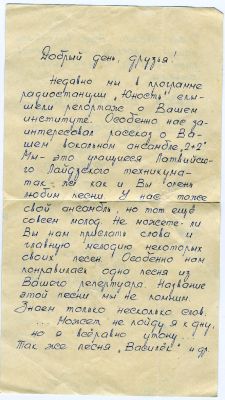 Добрый день, друзья!
Недавно мы в программе
радиостанции „Юность" слы-
шели репортаж о Вашем
институте. Особенно нас за-
интересовал рассказ о Ва-
шем вокальном ансамбле „2+2"
Мы - это учащиеся Латвийско-
го Лайдзского техникума -
так же как и Вы очень
любим песни. У нас тоже
свой ансамбль, но тот ещё
совсем молод. Не можете ли
Вы нам прислать слова и
главную мелодию некоторых
своих песен. Особенно нам
понравилась одна песня из
Вашего репертуара. Название
этой песни мы не помним.
Знаем только несколько слов.
... Может не пойду я к дну,
но я всёравно утону...!
Так же песня „Василёк" и др.